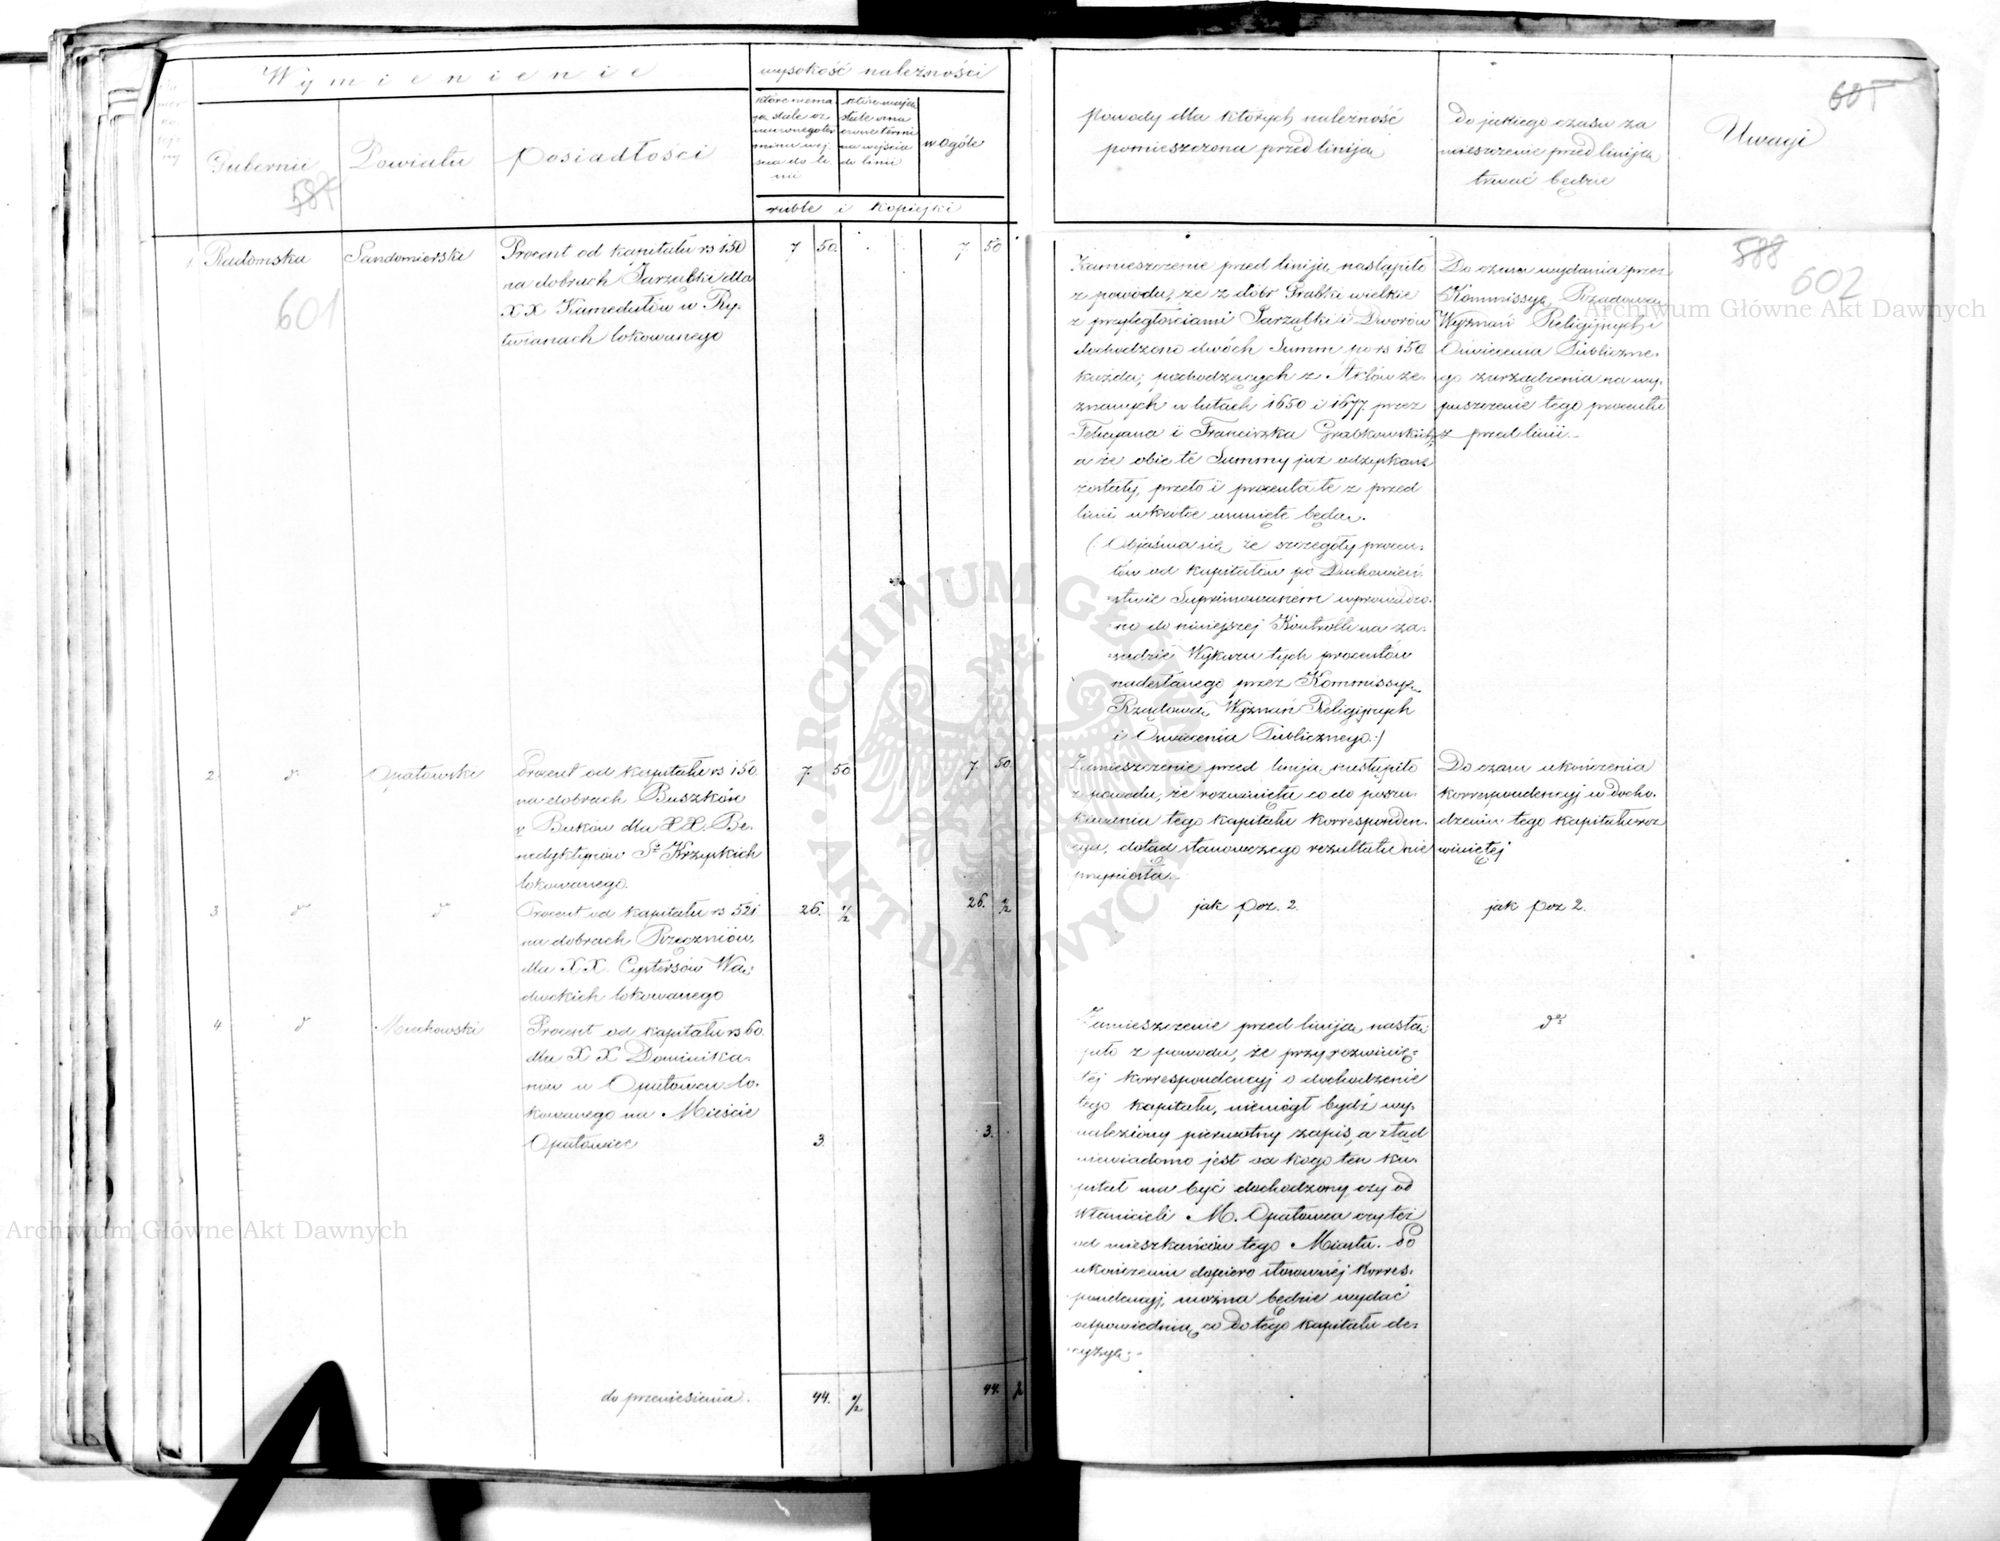 Wymienienie
wysokość należności
Gubernii
Powiatu
Posiadłości
które niema
ją stale oz
naczonego ter
minu wej
ścia do li
nii
które mają
stale ozna
czone termi
na wejścia
do linii
w ogóle
ruble i kopiejki
585
601
1 Radomska Sandomierski
Procent od kapitału rs 150
na dobrach Jarząbki dla
XX Kamedułów w Ry-
twianach lokowanego
7 50 7 50
2. d° Opatowski
Procent od kapitału rs 150.
na dobrach Buszków
i Buków dla XX. Be-
nedyktynów St Krzyskich
lokowanego.
7. 50 7. 50
3 d° d°
Procent od kapitału rs 521
na dobrach Rzeczniów,
dla XX. Cystersów Wą-
chockich lokowanego
26. 1/2 26. 1/2
4 d° Miechowski
Procent od kapitału rs 60.
dla XX Dominika-
nów w Opatowcu lo-
kowanego na Mieście
Opatowiec 3. 3.
do przeniesienia. 44. 1/2 44. 1/2
powody dla których należność
pomieszczona przed liniją
Do jakiego czasu za
mieszczenie przed liniją
trwać będzie
Uwagi
601
588
602
Zamieszczenie przed liniją nastąpiło
z powodu, że z dóbr Grabki wielkie
z przyległościami Jarząbki i Dworów
dochodzono dwóch Summ po rs 150
każda, pochodzących z Aktów ze-
znanych w latach 1650 i 1677 przez
Felicyana i Franciszka Grabkowskich,
a że obie te Summy już odzyskane
zostały, przeto i procenta te z przed
linii wkrótce usunięte będą.
(: Objaśnia się, że szczegóły procen-
tów od kapitałów po Duchowień-
stwie Suprimowanem wprowadzo-
no do niniejszej Kontrolli na za-
sadzie Wykazu tych procentów
nadesłanego przez Kommissyę
Rządową Wyznań Religijnych
i Oświecenia Publicznego:)
Do czasu wydania przez
Kommissyę Rządową
Wyznań Religijnych i
Oświecenia Publiczne-
go zarządzenia na wy-
puszczenie tego procentu
z przed linii.
Zamieszczenie przed liniją nastąpiło
z powodu, że rozwinięta co do poszu-
kiwania tego kapitału korresponden-
cya, dotąd stanowczego rezultatu nie
przyniosła.
Do czasu ukończenia
korrespondencyj w docho-
dzeniu tego kapitału roz
winiętej
jak poz. 2. jak poz 2.
Zamieszczenie przed liniją nastą-
piło z powodu, że przy rozwinię-
tej korrespondencyj o dochodzenie
tego kapitału, niemógł bydź wy-
naleziony pierwotny zapis, a ztąd
niewiadomo jest od kogo ten ka-
pitał ma być dochodzony, czy od
Właścicieli M. Opatowca czyteż
od mieszkańców tego Miasta. Po
ukończeniu dopiero stosownéj korres-
pondencyj, można będzie wydać
odpowiednią co do tego kapitału de-
cyzyę.
d°
Archiwum Główne Akt Dawnych
Archiwum Główne Akt Dawnych
ARCHIWUM GŁÓWNE AKT DAWNYCH